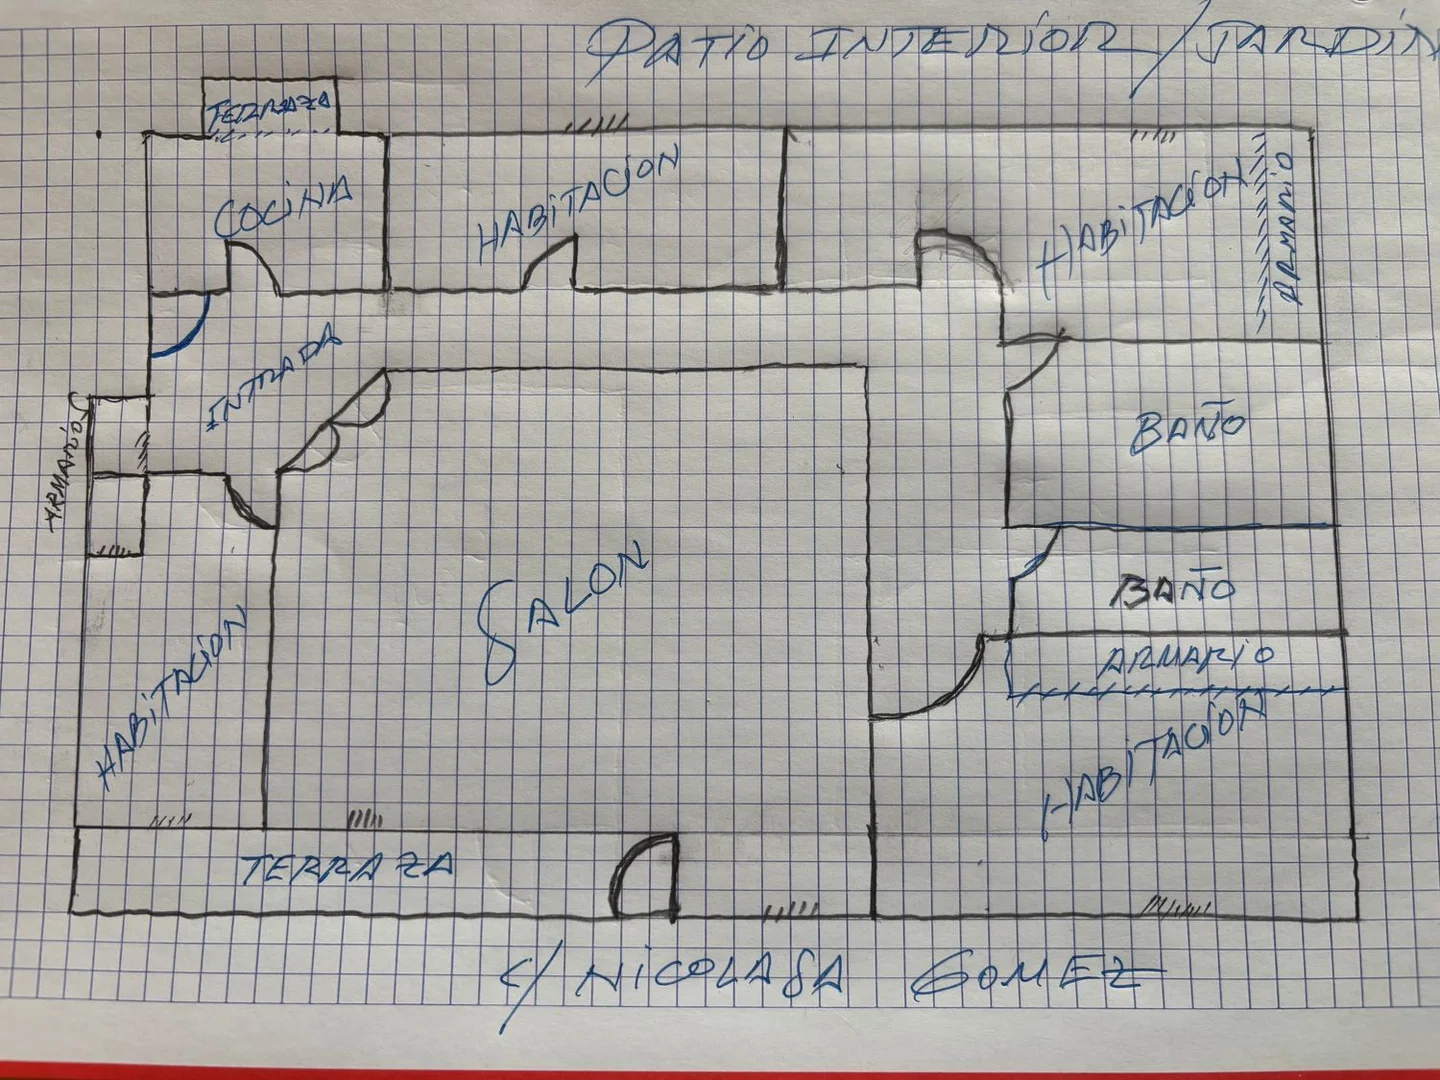 PATIO INTERIOR / JARDIN
TERRAZA
COCINA
HABITACION
HABITACIÓN
ARMARIO
INTRADA
ARMARIOS
BAÑO
SALON
BAÑO
ARMARIO
HABITACION
HABITACIÓN
TERRAZA
C/ NICOLASA GOMEZ